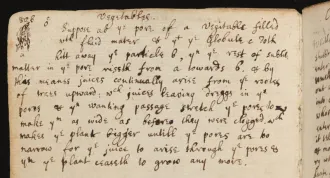 Vegetables.
Suppose ab yᵉ pore of a Vegetable filled
wᵗʰ fluid mater & yᵗ yᵉ Globule c doth
hitt away yᵉ particle b, yⁿ yᵉ rest of subtile
matter in yᵉ pore riseth from a towards b, & by
this meanes juices continually arise from yᵉ rootes
of trees upward, wᶜʰ juices leaving dreggs in yᵉ
pores & yⁿ wanting passage stretch yᵉ pores to
make yᵐ as wide as before they were clogged. wᶜʰ
makes yᵉ plant bigger untill yᵉ pores are too
narrow for yᵉ juice to arise through yᵉ pores &
yⁿ yᵉ plant ceaseth to grow any more.